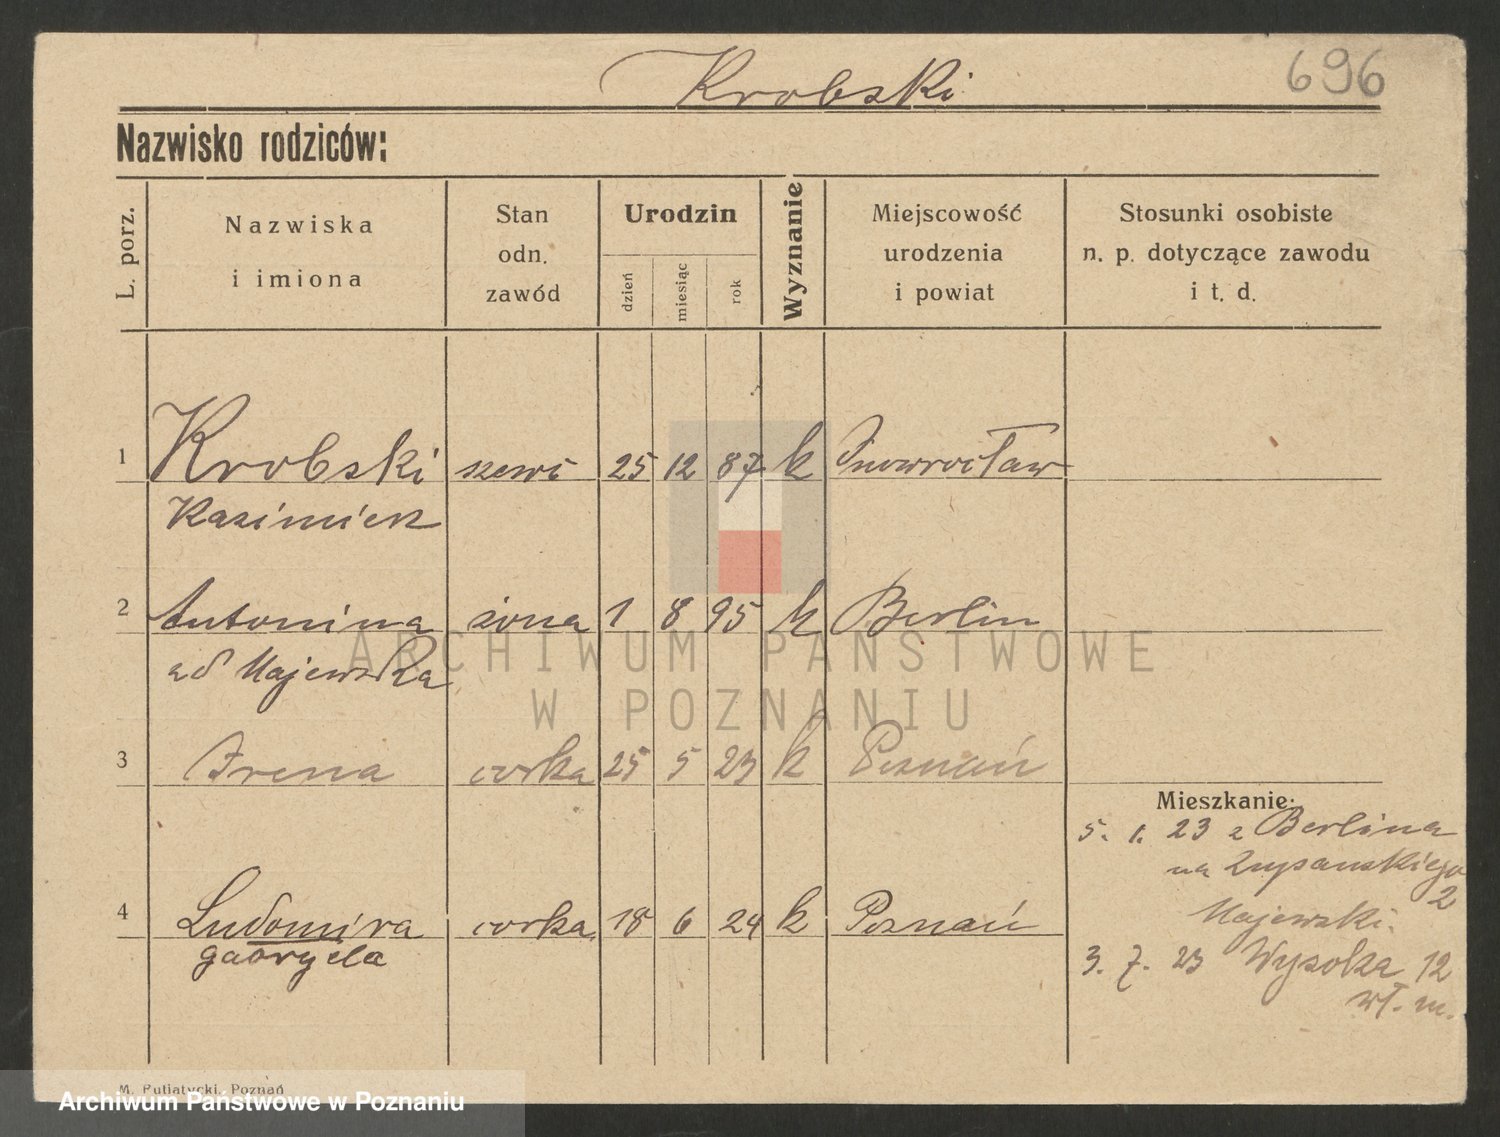 Krobski
696
Nazwisko rodziców:
L. porz.
Nazwiska
i imiona
Stan
odn.
zawód
Urodzin
dzień
miesiąc
rok
Wyznanie
Miejscowość
urodzenia
i powiat
Stosunki osobiste
n. p. dotyczące zawodu
i t. d.
1 Krobski szewc 25 12 87 k Inowrocław
Kazimierz
2 Antonina żona 1 8 95 k Berlin
zd Majewska
3 Irena corka 25 5 23 k Poznań
Mieszkanie:
5. 1. 23 z Berlina
na Zupanskiego
2
Majewski.
4 Ludomira corka 18 6 24 k Poznań
gabryela
3. 7. 23 Wysoka 12
wł. m.
ARCHIWUM PAŃSTWOWE
W POZNANIU
M. Putiatycki, Poznań
Archiwum Państwowe w Poznaniu